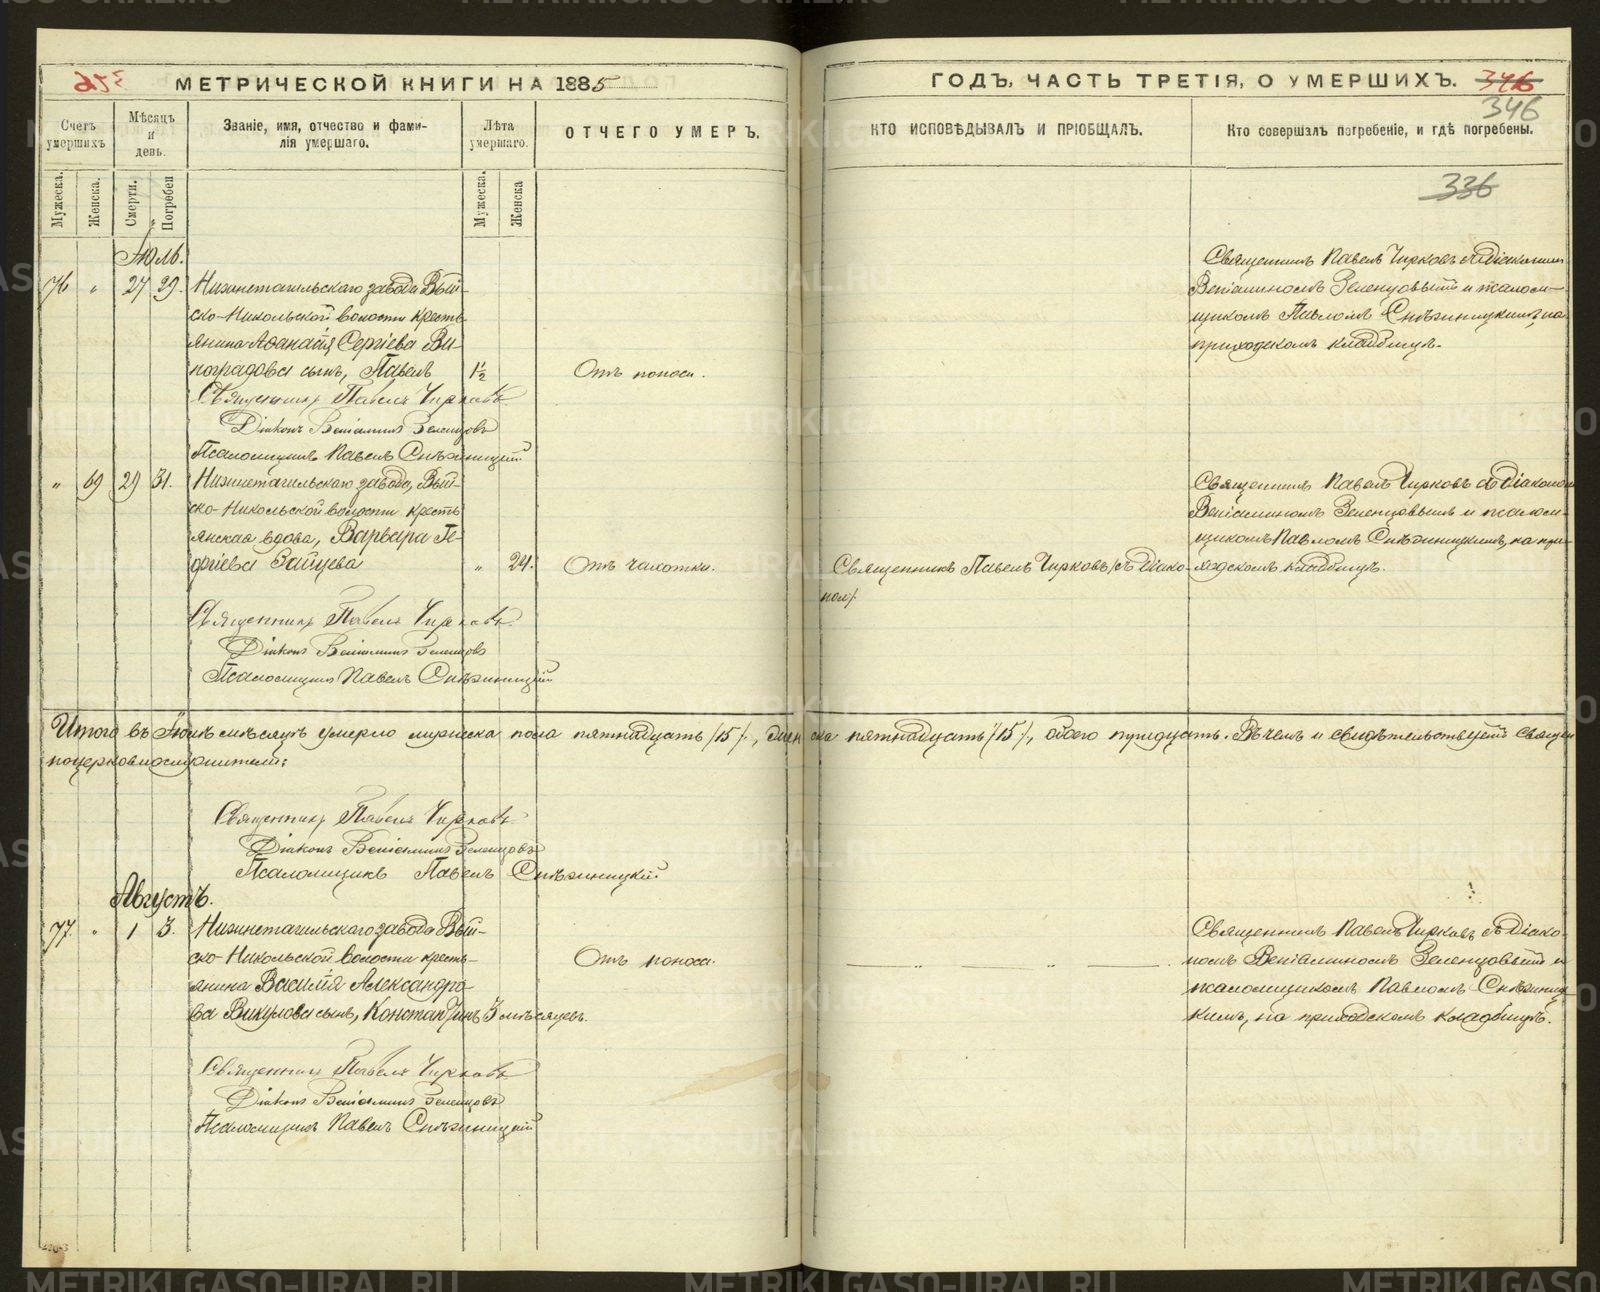 МЕТРИЧЕСКОЙ КНИГИ НА 1885
Счетъ умершихъ
Мѣсяцъ и день.
Званіе, имя, отчество и фами-
лія умершаго.
Лѣта умершаго.
ОТЧЕГО УМЕРЪ.
Мужеска.
Женска.
Смерти.
Погребен
Мужеска.
Женска
Іюль.
76 " 27 29. Нижнетагильскаго завода Вый-
ско-Никольской волости кресть-
янина Аѳанасія Сергіева Ви-
ноградова сынъ, Павелъ 1½ Отъ поноса.
Священникъ Павелъ Чирковъ
Діаконъ Веніаминъ Зеленцовъ
Псаломщикъ Павелъ Снѣжницкій
" 69 29 31. Нижнетагильскаго завода, Вый-
ско-Никольской волости кресть-
янская вдова, Варвара Ге-
оргіева Зайцева " 24. Отъ чахотки.
Священникъ Павелъ Чирковъ
Діаконъ Веніаминъ Зеленцовъ
Псаломщикъ Павелъ Снѣжницкій
Итого въ Іюлѣ мѣсяцѣ умерло мужеска пола пятнадцать /15/, женска пятнадцать /15/, обоего тридцать. Въ чемъ и свидѣтельствуемъ священ-
ноцерковнослужители:
Священникъ Павелъ Чирковъ
Діаконъ Веніаминъ Зеленцовъ
Псаломщикъ Павелъ Снѣжницкій
Августъ.
77. " 1 3. Нижнетагильскаго завода Вый-
ско-Никольской волости кресть-
янина Василія Александро-
ва Викулова сынъ, Константинъ 3 мѣсяцевъ. Отъ поноса.
Священникъ Павелъ Чирковъ
Діаконъ Веніаминъ Зеленцовъ
Псаломщикъ Павелъ Снѣжницкій
ГОДЪ, ЧАСТЬ ТРЕТІЯ, О УМЕРШИХЪ. 346
346
КТО ИСПОВѢДЫВАЛЪ И ПРІОБЩАЛЪ.
Кто совершалъ погребеніе, и гдѣ погребены.
336
Священникъ Павелъ Чирковъ съ Діакономъ
Веніаминомъ Зеленцовымъ и псалом-
щикомъ Павломъ Снѣжницкимъ, на
приходскомъ кладбищѣ.
Священникъ Павелъ Чирковъ съ Діакономъ
Веніаминомъ Зеленцовымъ и псалом-
щикомъ Павломъ Снѣжницкимъ, на при-
ходскомъ кладбищѣ.
Священникъ Павелъ Чирковъ /съ Діако-
номъ/.
Священникъ Павелъ Чирковъ съ Діако-
номъ Веніаминомъ Зеленцовымъ и
псаломщикомъ Павломъ Снѣжниц-
кимъ, на приходскомъ кладбищѣ.
METRIKI.GASO-URAL.RU